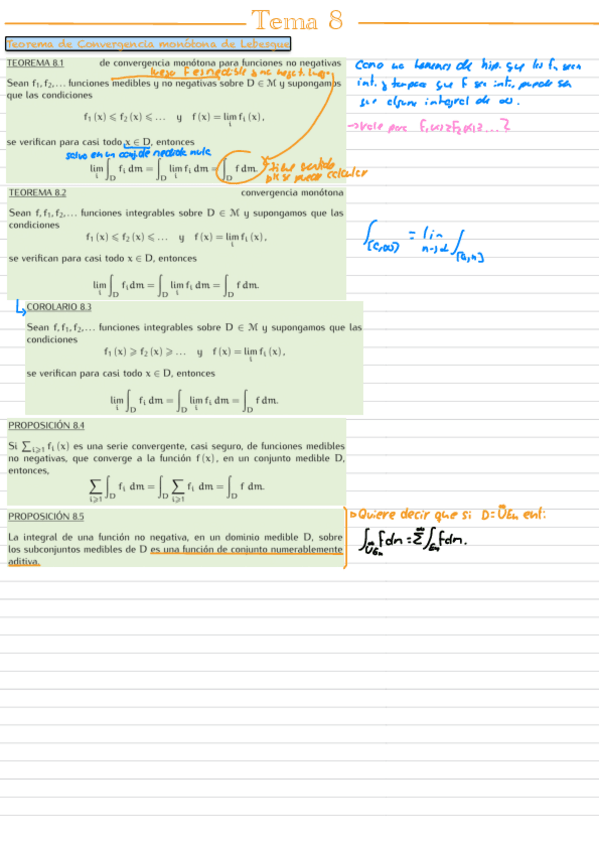 Tema 8
Teorema de Convergencia monótona de Lebesgue
TEOREMA 8.1 de convergencia monótona para funciones no negativas
luego f es medible y no negat. luego
Sean f₁, f₂, … funciones medibles y no negativas sobre D ∈ M y supongamos
que las condiciones
f₁(x) ⩽ f₂(x) ⩽ … y f(x) = lim_i f_i(x),
se verifican para casi todo x ∈ D, entonces
salvo en un conj. de medida nula
lim_i ∫_D f_i dm = ∫_D lim_i f_i dm = ∫_D f dm.
tiene sentido
se puede calcular
Como no tenemos de hip. que las fₙ sean
int. y tampoco que f sea int., puede ser
que alguna integral dé ∞.
→Vale para f₁(x)≥f₂(x)≥...?
TEOREMA 8.2 convergencia monótona
Sean f, f₁, f₂, … funciones integrables sobre D ∈ M y supongamos que las
condiciones
f₁(x) ⩽ f₂(x) ⩽ … y f(x) = lim_i f_i(x),
se verifican para casi todo x ∈ D, entonces
lim_i ∫_D f_i dm = ∫_D lim_i f_i dm = ∫_D f dm.
∫_[0,∞) = lim_{n→∞} ∫_[0,n]
COROLARIO 8.3
Sean f, f₁, f₂, … funciones integrables sobre D ∈ M y supongamos que las
condiciones
f₁(x) ⩾ f₂(x) ⩾ … y f(x) = lim_i f_i(x),
se verifican para casi todo x ∈ D, entonces
lim_i ∫_D f_i dm = ∫_D lim_i f_i dm = ∫_D f dm.
PROPOSICIÓN 8.4
Si ∑_{i⩾1} f_i(x) es una serie convergente, casi seguro, de funciones medibles
no negativas, que converge a la función f(x), en un conjunto medible D,
entonces,
∑_{i⩾1} ∫_D f_i dm = ∫_D ∑_{i⩾1} f_i dm = ∫_D f dm.
PROPOSICIÓN 8.5
La integral de una función no negativa, en un dominio medible D, sobre
los subconjuntos medibles de D es una función de conjunto numerablemente
aditiva.
Quiere decir que si D=∪Eₙ ent:
∫_{∪Eₙ} f dm = ∑ ∫_{Eₙ} f dm.